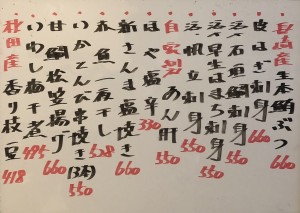 長崎産生本鮪ぶつ
皮はぎ刺身 660
活石垣鯛刺身 660
活早生はまち刺身 550
活帆立刺身 550
自家製あん肝 550
はや塩辛 330
新さんま塩焼き 660
赤魚一夜干し 528
いかとんび串焼き(3本) 550
甘鯛松笠揚げ 660
いわし梅干煮 495
秋田産香り枝豆 418